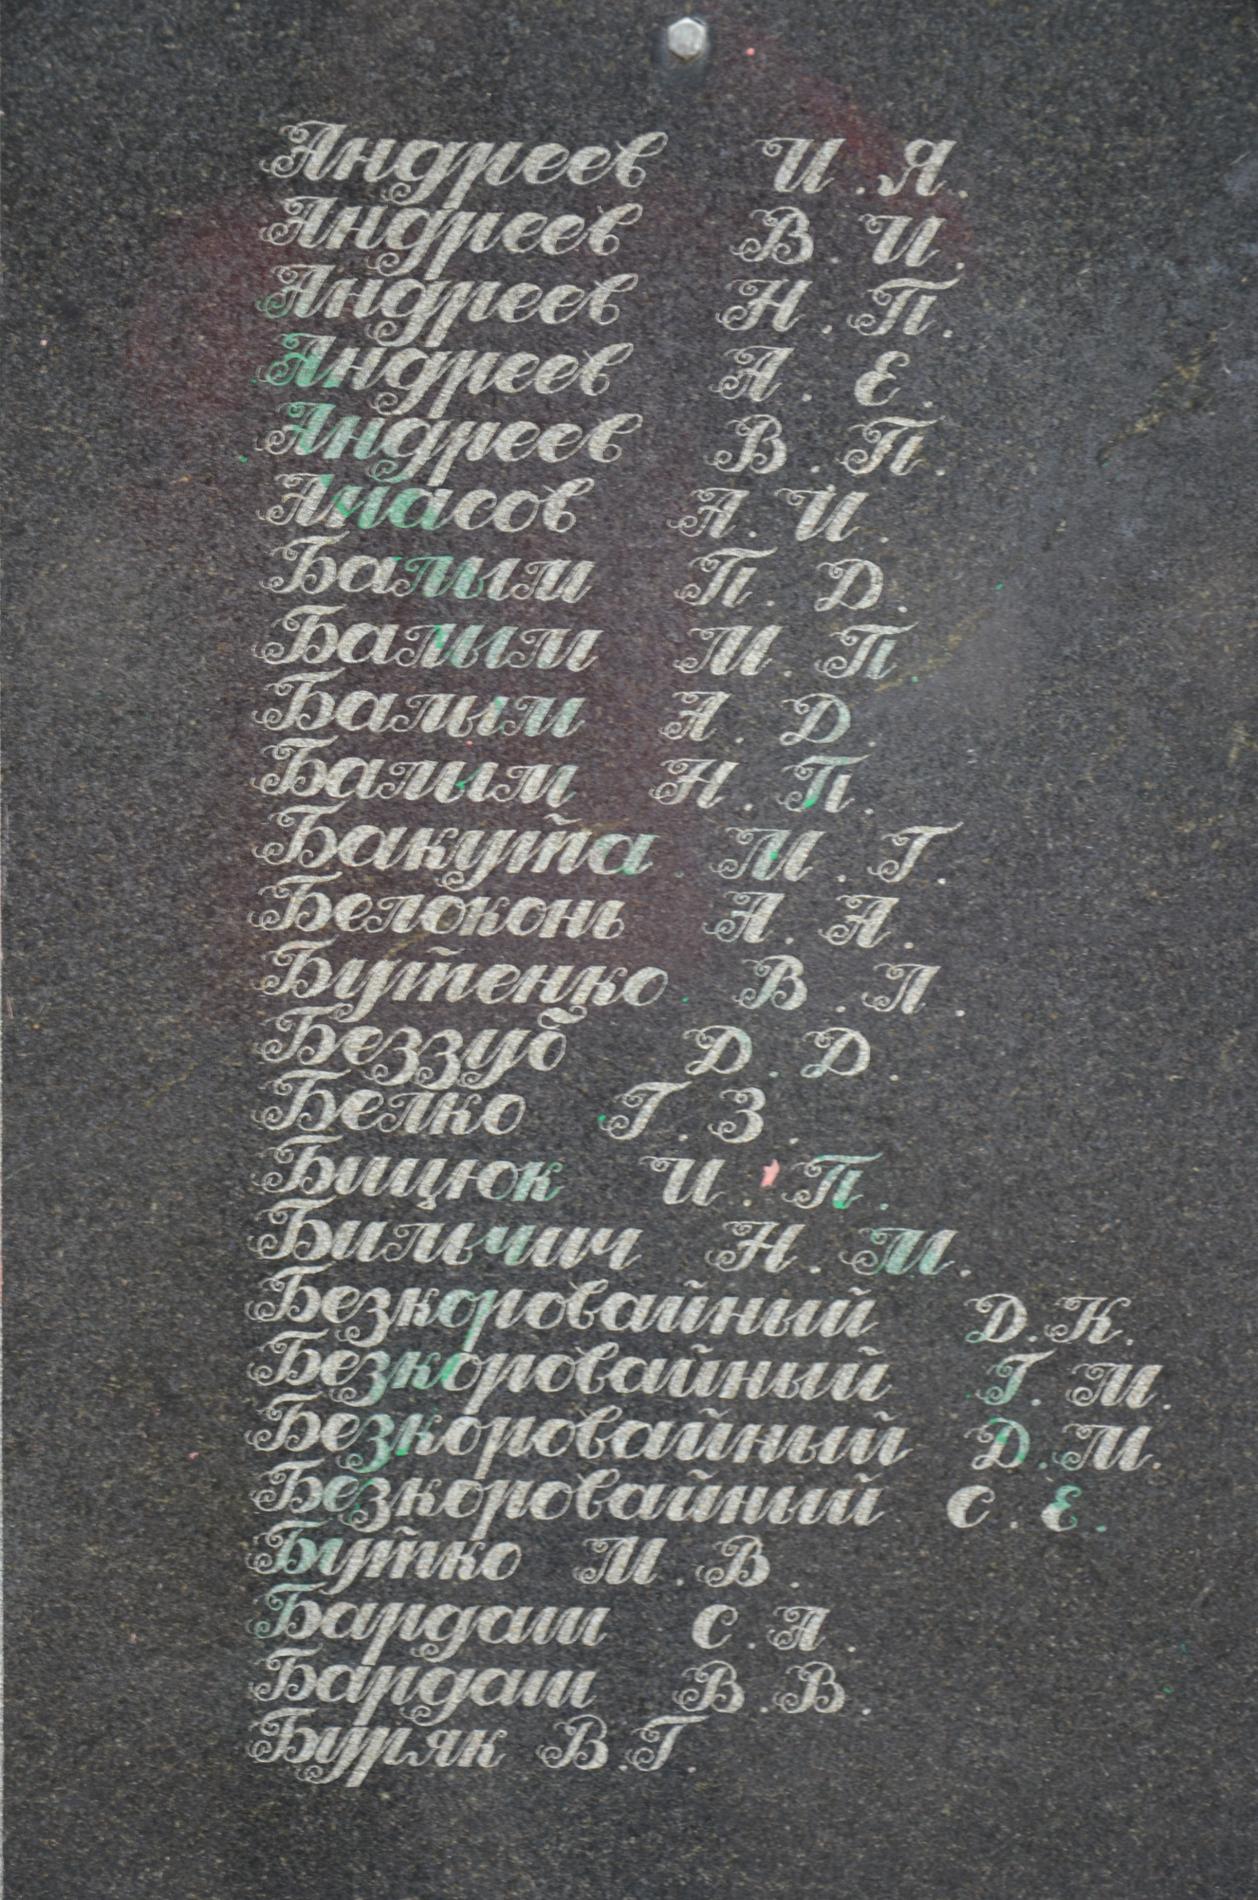 Андреев И.Я.
Андреев В.И.
Андреев Н.П.
Андреев А.Е.
Андреев В.П.
Ачасов А.И.
Балым П.Д.
Балым М.П.
Балым А.Д.
Балым Н.П.
Бакута М.Г.
Белоконь А.А.
Бутенко В.Л.
Беззуб Д.Д.
Белко Г.З.
Бицюк И.П.
Бильчич Н.М.
Безкоровайный Д.К.
Безкоровайный Г.М.
Безкоровайный Д.М.
Безкоровайный С.Е.
Бутко М.В.
Бардаш С.А.
Бардаш В.В.
Буряк В.Г.